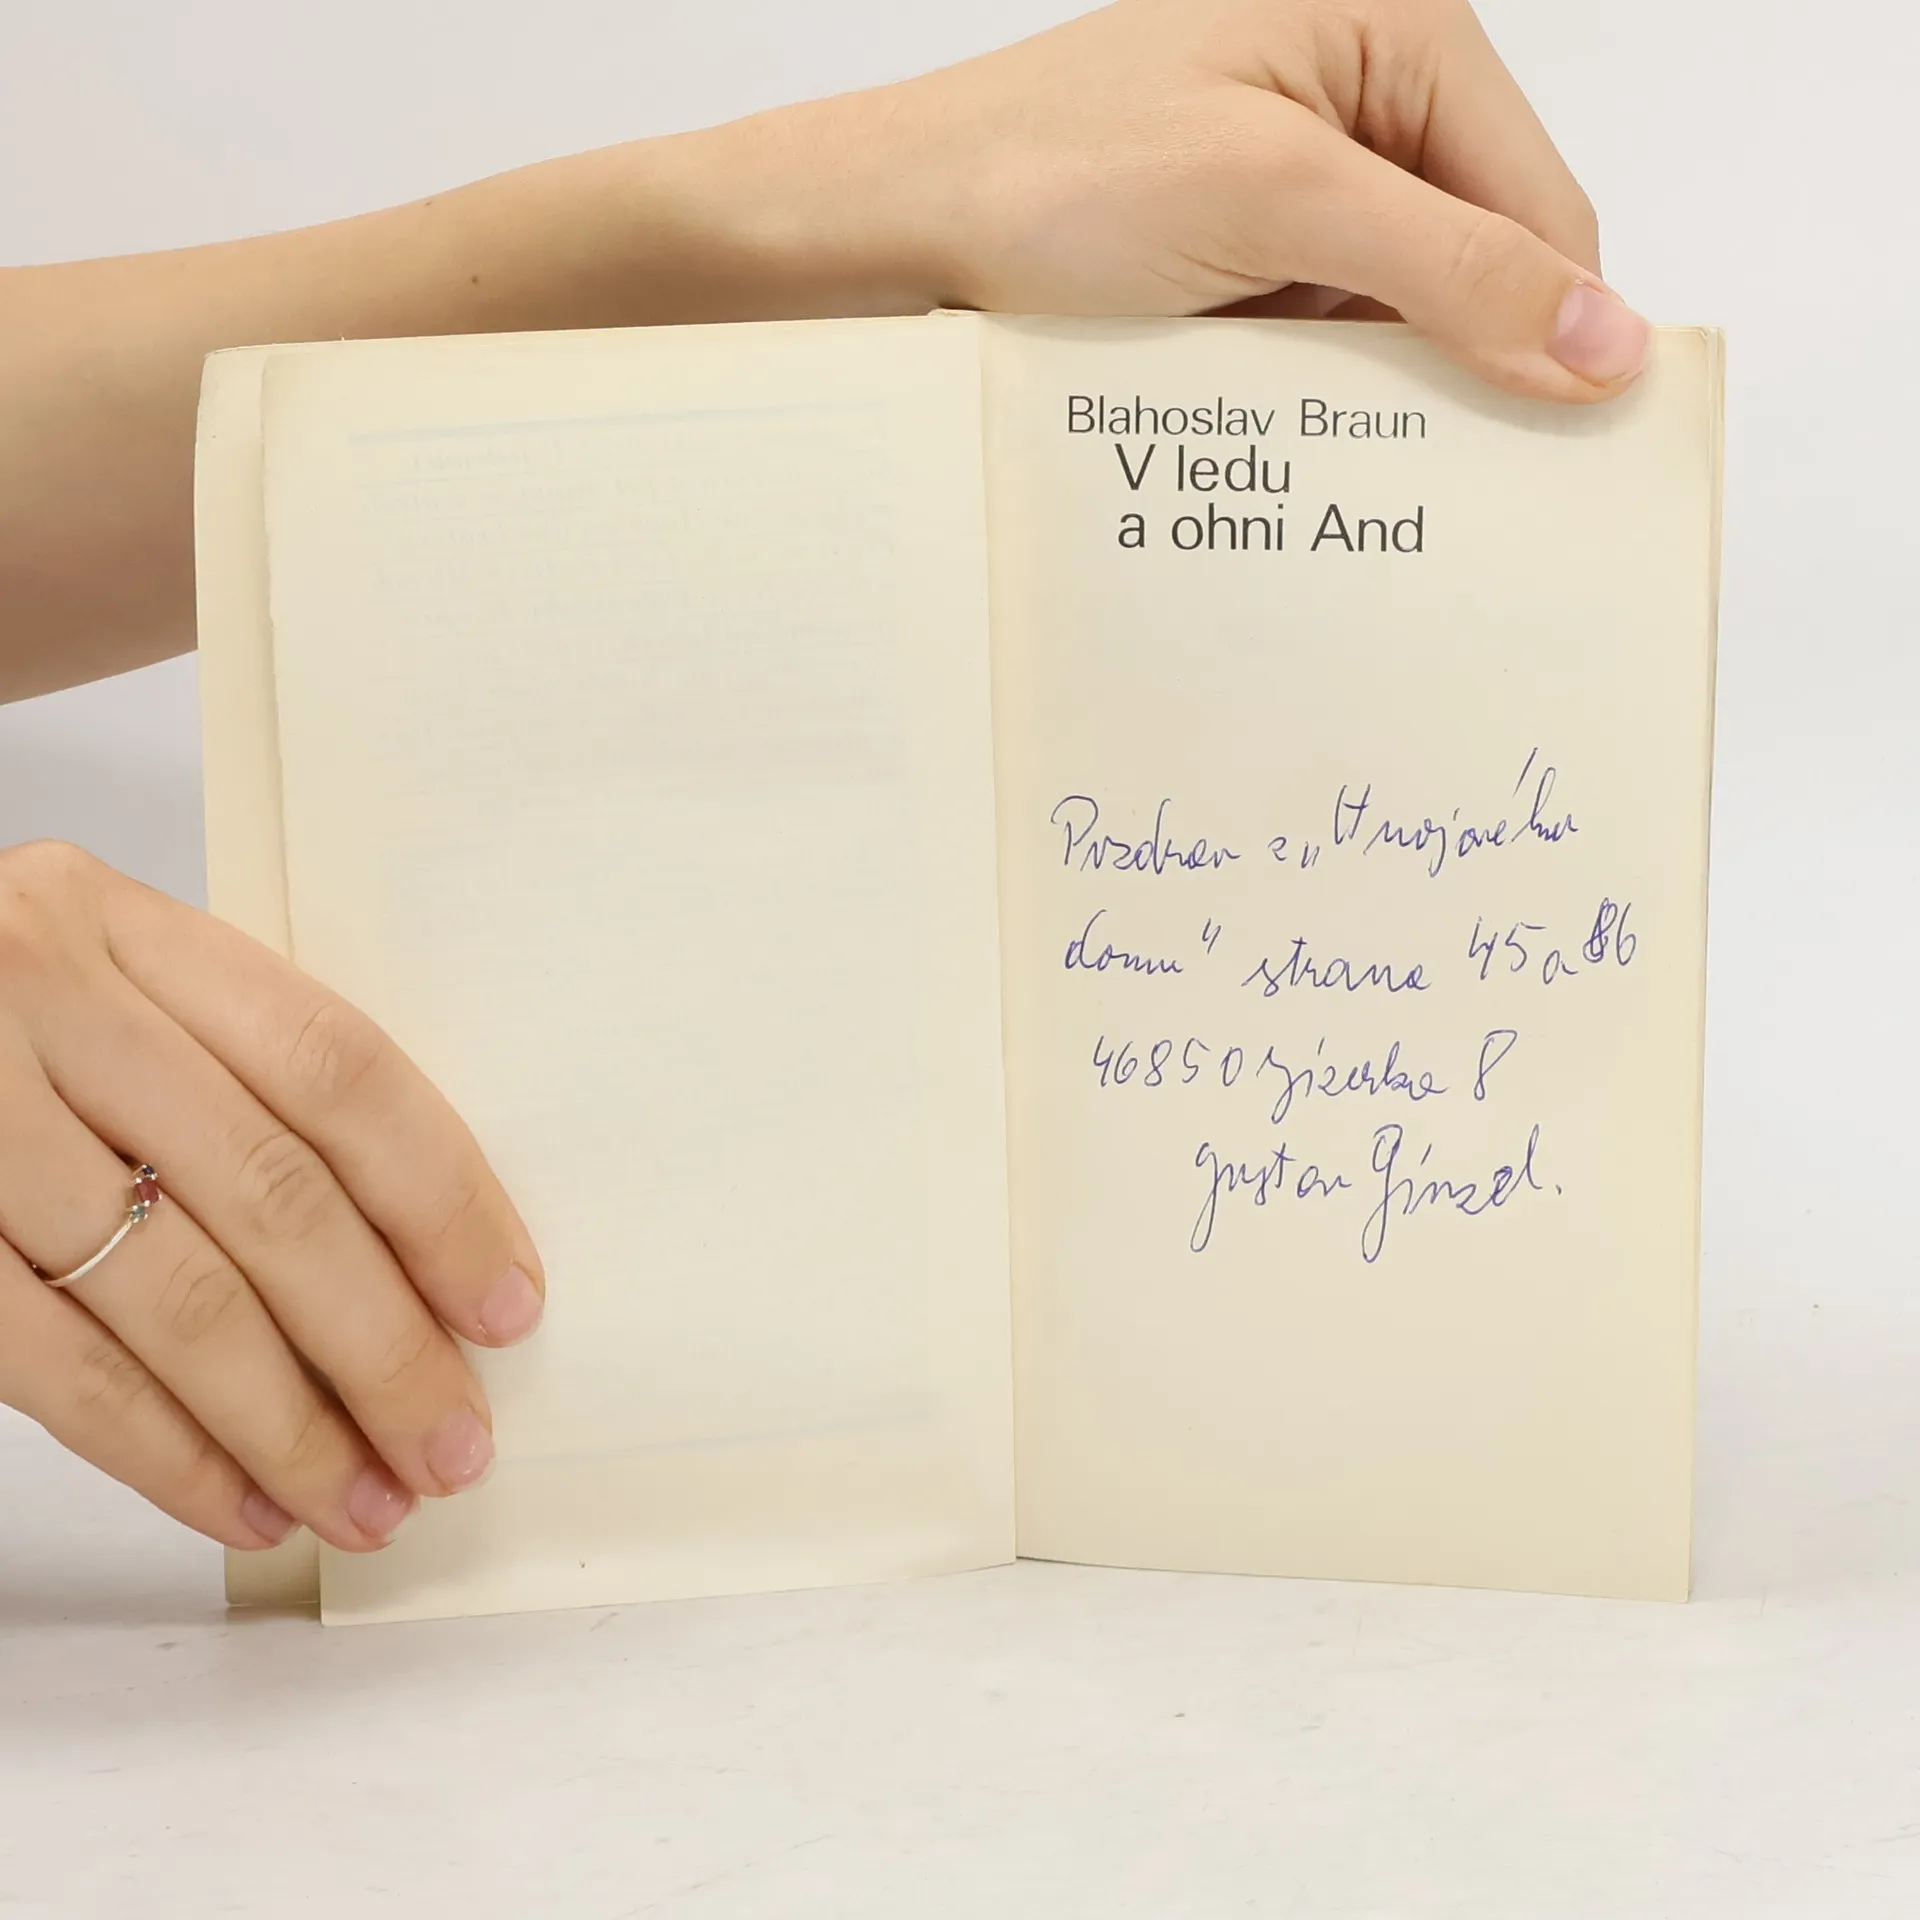 Blahoslav Braun
V ledu
a ohni And
Pozdrav z „Hnojového
domu“ strana 45 a 86
46850 Jizerka 8
Gustav Ginzel.